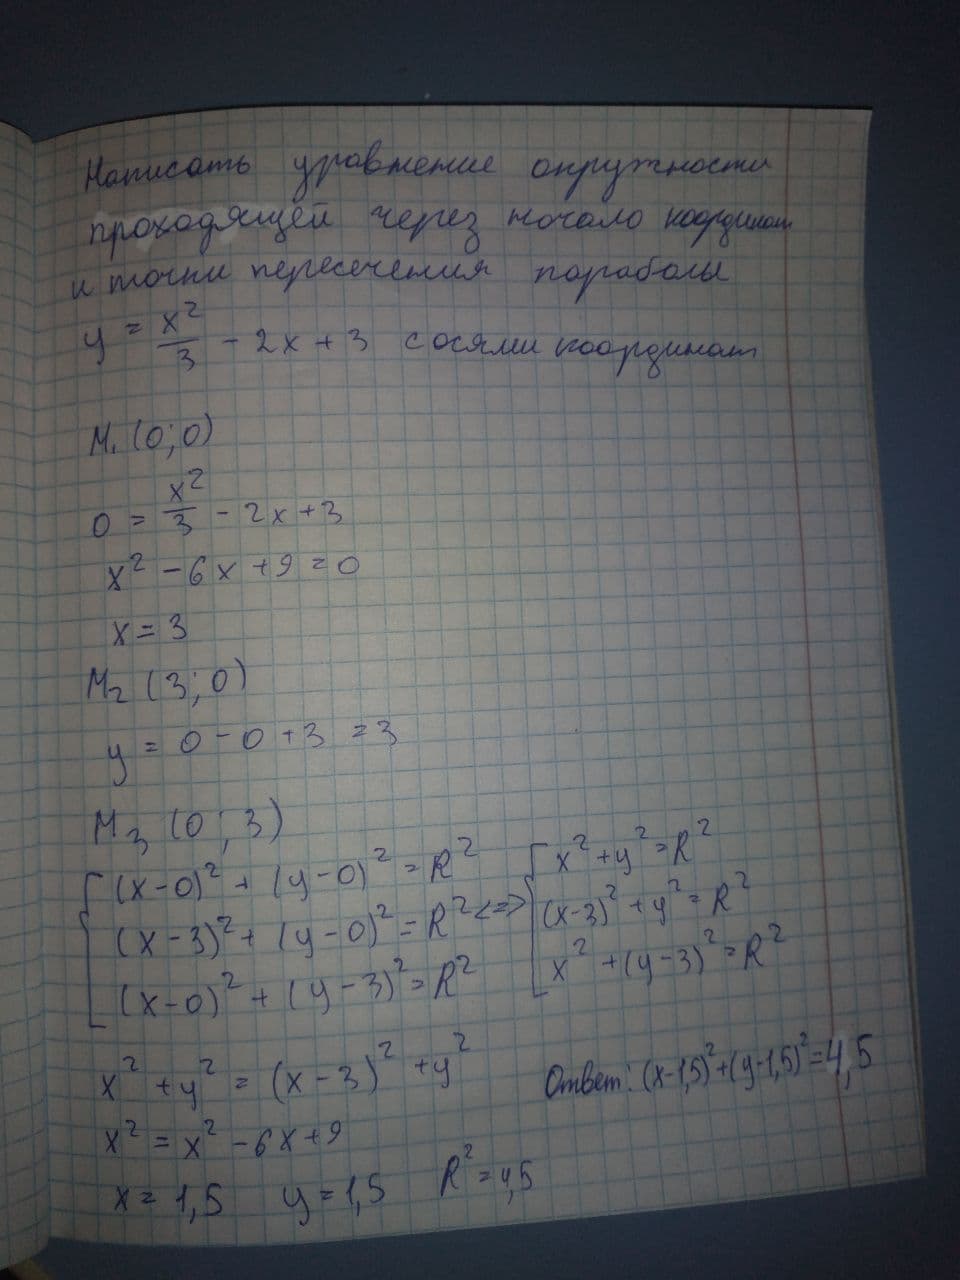 Написать уравнение окружности
проходящей через начало координат
и точки пересечения параболы
y = x²/3 - 2x + 3 с осями координат
M₁ (0; 0)
0 = x²/3 - 2x + 3
x² - 6x + 9 = 0
x = 3
M₂ (3; 0)
y = 0 - 0 + 3 = 3
M₃ (0; 3)
(x-0)² + (y-0)² = R² x² + y² = R²
(x-3)² + (y-0)² = R² <=> (x-3)² + y² = R²
(x-0)² + (y-3)² = R² x² + (y-3)² = R²
x² + y² = (x-3)² + y² Ответ: (x-1,5)² + (y-1,5)² = 4,5
x² = x² - 6x + 9
x = 1,5 y = 1,5 R² = 4,5